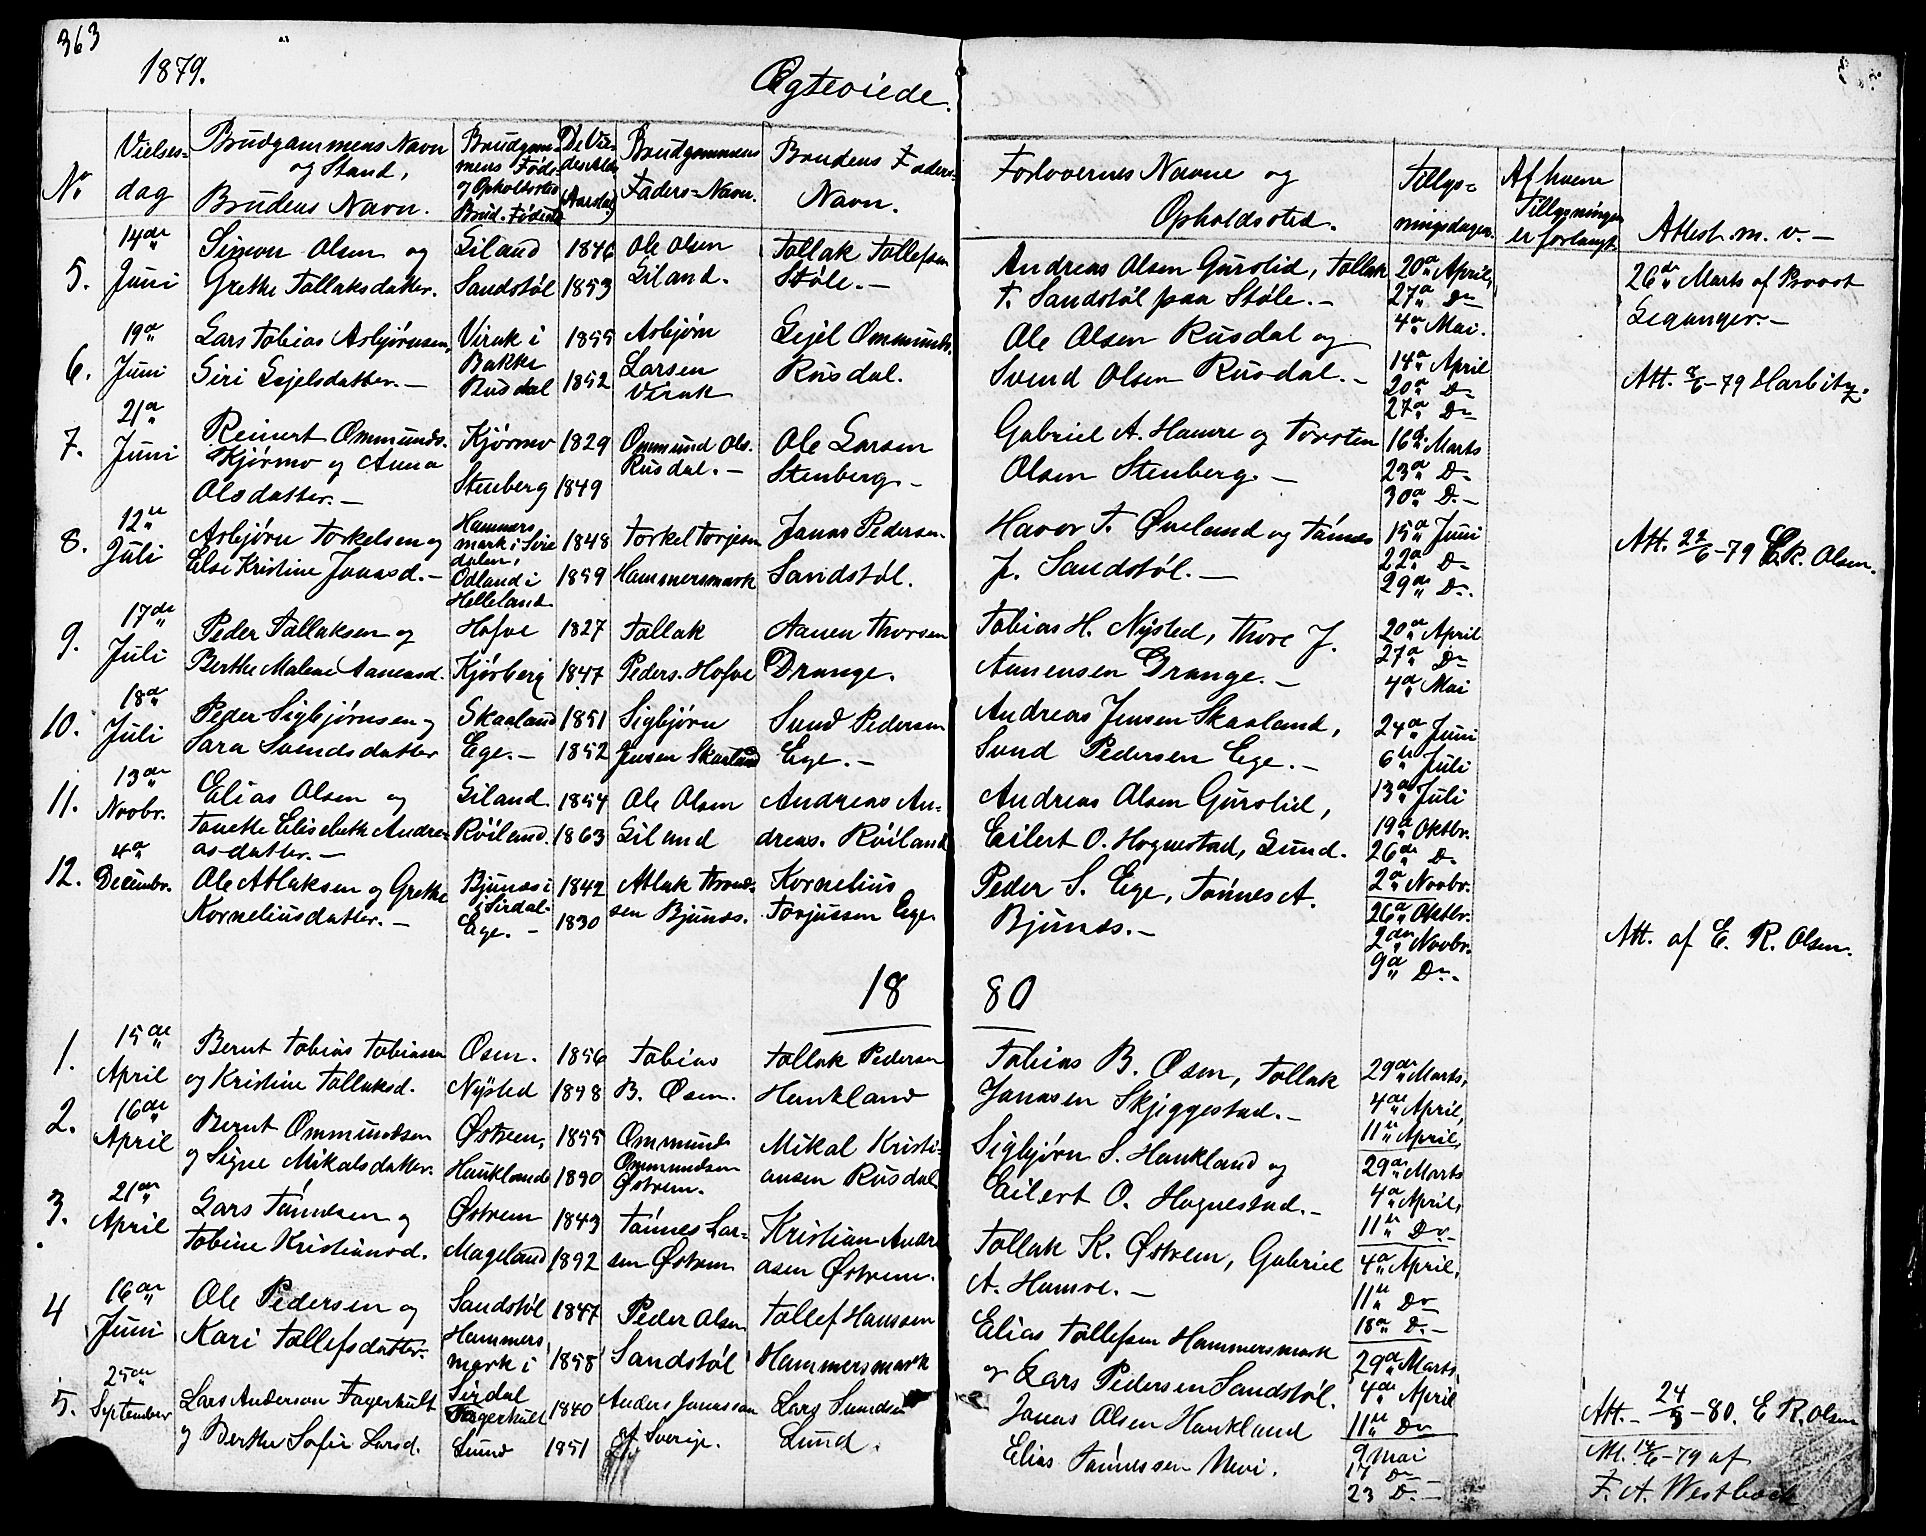 363
1879.
Ægteviede.
No
Vielses=
dag
Brudgammens Navn
og Stand,
Brudens Navn.
Brudgam=
mens Føde
og Opholdssted
Brud. Fødested
De Vie=
des Alder
(Aarstal)
Brudgommens
Faders=Navn.
Brudens Faders=
Navn.
Forlovernes Navne og
Opholdssted.
Tillys=
ningsdagen.
Af hvem
Tillysningen
er forlangt.
Attest m. v. –
5.
14de
Juni
Simon Olsen og
Grethe Tollaksdatter.
Eiland
Sandstøl
1846
1853
Ole Olsen
Eiland.
Tollak Tollefsen
Støle. –
Andreas Olsen Gurslid, Tollak
T. Sandstøl paa Støle. –
20de April,
27de Do
4de Mai.
26de Marts af Provst
Leganger. –
6.
19de
Juni
Lars Tobias Asbjørnsen,
Siri Eejelsdatter. –
Virak i
Bakke
Rusdal
1855
1852
Asbjørn
Larsen
Virak
Eejel Ommunds.
Rusdal.
Ole Olsen Rusdal og
Svend Olsen Rusdal. –
14de April
20de Do
27de Do
Att. 8/6 – 79 Harbitz.
7.
21de
Juni
Reinert Ommunds.
Kjørmo og Anna
Olsdatter. –
Kjørmo
Stenberg
1829
1849
Ommund Ols.
Rusdal. –
Ole Larsen
Stenberg. –
Gabriel A. Hamre og Torsten
Olsen Stenberg. –
16de Marts
23de Do
30de Do –
8.
12te
Juli
Asbjørn Torkelsen og
Elsi Kristine Jonasd. –
Hammers
mark i Sire
dalen,
Ødland i
Helleland
1848
1859
Torkel Torjesen
Hammersmark
Jonas Pedersen
Sandstøl.
Haver T. Øveland og Tønnes
J. Sandstøl. –
15de Juni
22de Do
29de Do.
Att. 22/6 – 79 E. R. Olsen.
9.
17de
Juli
Peder Tollaksen og
Berthe Malene Aanensd.
Hofve
Kjørberg
1827
1847
Tollak
Peders. Hofve
Aanen Thorsen
Drange.
Tobias H. Nysted, Thore J.
Aanensen Drange. –
20de April
27de Do
4de Mai
10.
18de
Juli
Peder Sigbjørnsen og
Sara Svendsdatter
Skaaland
Ege. –
1851
1852
Sigbjørn
Jensen Skaaland
Svend Pedersen
Ege. –
Andreas Jensen Skaaland,
Svend Pedersen Ege. –
24de Juni
6te Juli
13de Juli
11.
13de
Novbr.
Elias Olsen og
Tonette Elisebeth Andre=
asdatter. –
Eiland.
Røiland.
1854
1863
Ole Olsen
Eiland
Andreas An=
dreas. Røiland
Andreas Olsen Gurslid,
Eilert O. Hognestad, Lund.
19de Oktbr.
26de Do
2de Novbr.
12.
4de
Decembr.
Ole Atlaksen og Grethe
Korneliusdatter. –
Bjunes i
i Sirdal.
Ege. –
1842
1830
Atlak Thrond=
sen Bjunes.
Kornelius
Torjussen Ege.
Peder S. Ege, Tønnes A.
Bjunes. –
26de Oktbr.
2den Novbr.
9de Do. –
Att. af E. R. Olsen.
18 80
1.
15de
April
Bernt Tobias Tobiassen
og Kristine Tollaksd.
Osen.
Nysted
1856
1858
Tobias
B. Osen.
Tollak Pedersen
Haukland
Tobias B. Osen, Tollak
Jonassen Skjeggestad. –
29de Marts,
4de April,
11te April,
2.
16de
April
Bernt Ommundsen
og Signe Mikalsdatter.
Østrem,
Haukland
1855
1850
Ommund
Ommundsen
Østrem.
Mikal Kristi=
ansen Rusdal.
Sigbjørn S. Haukland og
Eilert O. Hognestad. –
29de Marts
4de April,
11te Do –
3.
21de
April
Lars Tønnesen og
Tobine Kristiansd.
Østrem
Mageland
1843
1852
Tønnes Lar=
sen Østrem
Kristian Andre
asen Østrem.
Tollak K. Østrem, Gabriel
A. Hamre. –
4de April,
11te Do
18de Do –
4
16de
Juni
Ole Pedersen og
Kari Tollefsdatter.
Sandstøl
Hammers
mark i
Sirdal
1847
1858
Peder Olsen
Sandstøl
Tollef Hanssen
Hammersmark
Elias Tollefsen Hammersmark
og Lars Pedersen Sandstøl.
29de Marts
4de April
11te Do
Att. – 24/3 – 80. E R. Olsen
5.
25de
September
Lars Anderson Fagerhult
og Berthe Sofie Larsd.
Fagerhult
Lund
1840
1851
Anders Jonasson
af Sverige.
Lars Svendsen
Lund.
Jonas Olsen Haukland
Elias Tønnessen Mevi.
9 Mai
17 Do –
23 Do –
Att. 14/6 – 79 af
F. A. Westbeck